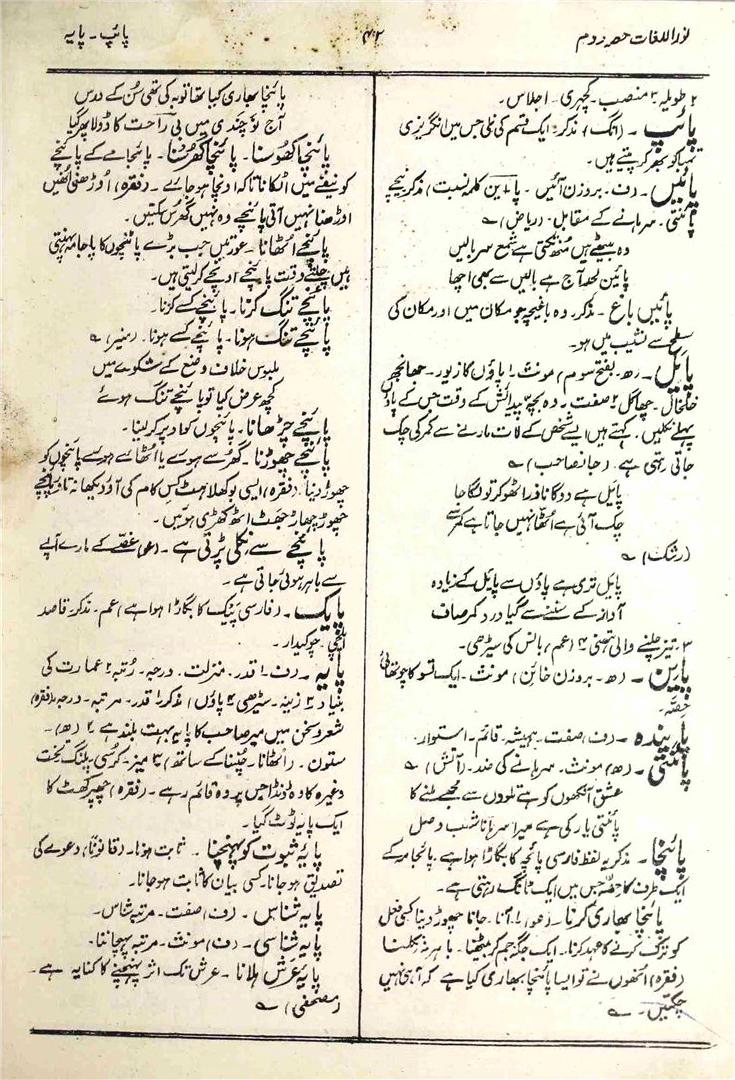 نور اللغات حصہ دوم
۴۲
پائپ - پایہ
۲ طویلہ ۳ منصب - کچہری - اجلاس -
پائپ - (انگ) مذکر - ایک قسم کی نلی جس میں انگریزی
تمباکو بھر کر پیتے ہیں -
پائیں - (ف - بروزن آئیں - پا + ین کلمہ نسبت) مذکر نیچے
پائنتی - سرہانے کے مقابل - (ریاض) ؎
وہ بیٹھے ہیں منھ تکتی ہے شمع سر بالیں
پائین لحد آج ہے بالیں سے بھی اچھا
پائیں باغ - مذکر - وہ باغیچہ جو مکان میں اور مکان کی
سطح سے نشیب میں ہو -
پایل - (ھ - بفتح سوم) مونث ۱ پاؤں کا زیور - جھانجھ
خلخال - چھاگل ۲ صفت - وہ بچہ پیدائش کے وقت جس کے پاؤں
پہلے نکلیں - کہتے ہیں ایسے شخص کے لات مارنے سے کمر کی چک
جاتی رہتی ہے - (جان صاحب) ؎
پایل ہے دوگانا ذرا ٹھوکر تو لگا جا
چک آئی ہے اُٹھا نہیں جاتا ہے کمر سے
(رشک) ؎
پایل تری ہے پاؤں سے پایل کے زیادہ
آواز کے سننے سے گیا درد کمر صاف
۳ - تیز چلنے والی ہتھنی ۴ (عم) بانس کی سیڑھی -
پایین - (ھ - بروزن خائن) مونث - ایک تسو کا چوتھائی
حصّہ -
پایندہ - (ف) صفت - ہمیشہ - قائم - استوار -
پائنتی - (ھ) مونث - سرہانے کی ضد - (آتش) ؎
عشق آنکھوں کو ہے تلووں سے مجھے ملنے کا
پائنتی یار کی ہے میرا سرہانا شب وصل
پائنچا - مذکر یہ لفظ فارسی پائچہ کا بگاڑا ہوا ہے - پائجامہ کے
ایک طرف کا حصّہ جس میں ایک ٹانگ رہتی ہے -
پائنچا بھاری کرنا - (عو) ۱ آنا - جانا چھوڑ دینا کسی فعل
کو ترک کرنے کا عہد کرنا - ایک جگہ جم کر بیٹھنا - باہر نہ نکلنا
(فقرہ) انھوں نے تو ایسا پائنچا بھاری کیا ہے کہ آ ہی نہیں
چکتیں - ؎
پائنچا بھاری کیا تھا توبہ کی تھی سُن کے درس
آج نوچندی میں بی راحت کا ڈولا پھر گیا
پائنچا کھوسنا - پائنچا گھرسنا - پائجامے کے پائنچے
کو نیفے میں اٹکانا تاکہ اونچا ہو جائے - (فقرہ) اُوڑھنی اُنھیں
اوڑھنا نہیں آتی پائنچے وہ نہیں گھرس سکتیں -
پائنچے اُٹھانا - عورتیں جب بڑے پائنچوں کا پاجامہ پہنتی
ہیں چلتے وقت پائنچے اونچے کر لیتی ہیں -
پائنچے تنگ کرنا - پائنچے کے کرنا -
پائنچے تنگ ہونا - پائنچے کے ہونا - (منیر) ؎
ملبوس خلاف وضع کے شکوے میں
کچھ عرض کیا تو پائنچے تنگ ہوئے
پائنچے چڑھانا - پائنچوں کو اوپر کر لینا -
پائنچے چھوڑنا - گھرسے ہوئے یا اٹھائے ہوئے پائنچوں کو
چھوڑ دینا - (فقرہ) ایسی بوکھلاہٹ کس کام کی آؤ دیکھا نہ تاؤ پائنچے
چھوڑ چھاڑ جھٹ اٹھ کھڑی ہوئیں -
پائنچے سے نکلی پڑتی ہے - (عو) غصّے کے مارے آپے
سے باہر ہوئی جاتی ہے -
پایک - (فارسی پَیک کا بگاڑا ہوا ہے) عم - مذکر - قاصد
ایلچی - چوکیدار -
پایہ - (ف - ۱ قدر - منزلت - درجہ - رُتبہ ۲ عمارت کی
بنیاد ۳ زینہ - سیڑھی ۴ پاؤں) مذکر ۱ قدر - مرتبہ - درجہ (فقرہ)
شعر و سخن میں میر صاحب کا پایہ بہت بلند ہے ۲ (ھ) -
ستون - (اٹھانا - چُننا کے ساتھ) ۳ میز - کرسی پلنگ تخت
وغیرہ کا وہ ڈنڈا جس پر وہ قائم رہے - (فقرہ) چھپرکھٹ کا
ایک پایہ ٹوٹ گیا -
پایۂ ثبوت کو پہنچنا - ثابت ہونا - (قانون) دعوے کی
تصدیق ہو جانا - کسی بیان کا ثابت ہو جانا -
پایہ شناس - (ف) صفت - مرتبہ شناس -
پایہ شناسی - (ف) مونث - مرتبہ پہچاننا -
پایۂ عرش ہلانا - عرش تک اثر پہنچنے کا کنایہ ہے -
(مصحفی) ؎